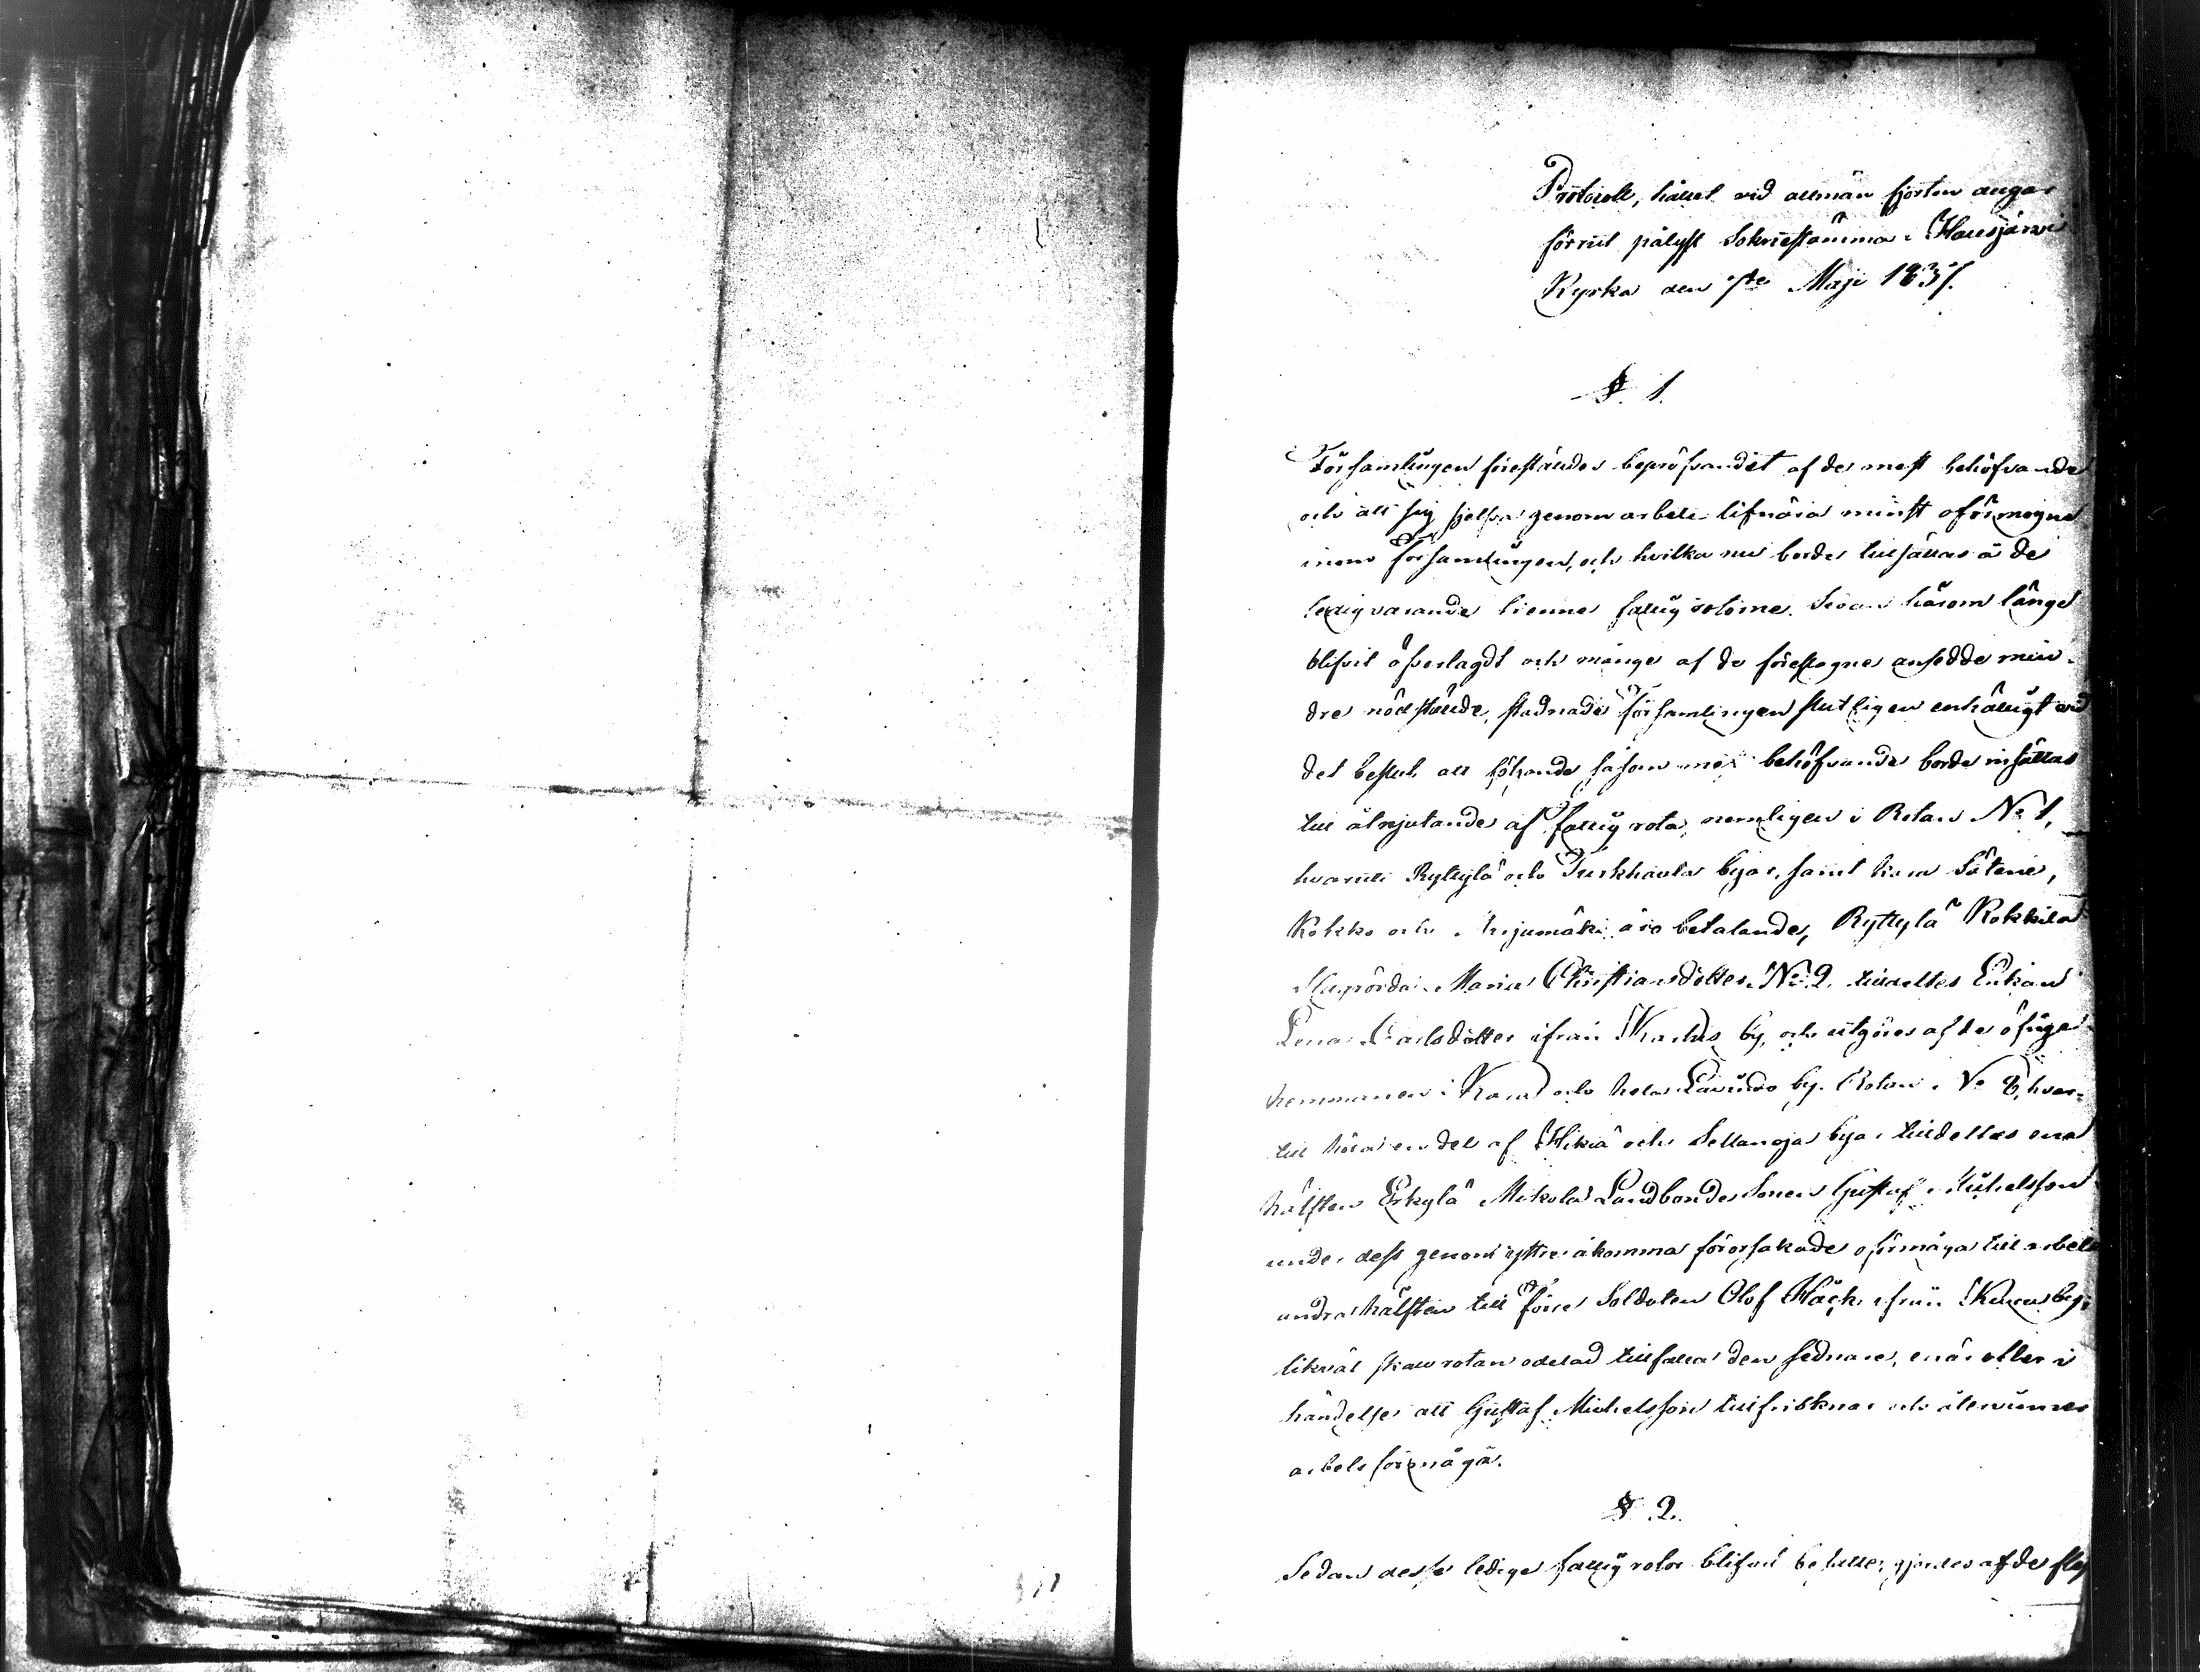 Protocoll, hållet vid allmän fjorton dagar
förrut pålyst Sokne stämma i Hausjärvi
Kyrka den 7de Maji 1837.
§. 1.
Församlingen förestäldes bepröfvandet af de mest behöfvande
och att sig sjelfva genom arbete lifnära minst oförmögne
inom församlingen, och hvilka nu borde tillsättas å de
ledigvarande tienne fattig rotorne. Sedan härom länge
blifvit öfverlagdt och många af de föreslagne ansedde min-
dre nödstälde, stadnade församlingen slutligen enhälligt vid
det beslut att följande såsom mest behöfvande borde insättas
till åtnjutande af fattig rota, nemligen i Rotan No 1,
hvartill Ryttylä och Turkhauta byar, samt
Kokko och äro betalande, Ryttylä Kokkila
Maria Christiansdotter. No 2. tilldeltes Enkan
Lena Carlsdotter ifrån by, och utgöres af de öfrige
hemmanen i Kara och hela by. Rotan No 8, hvar-
till höra en del af Hikiä och Selänoja byar tilldeltes ena
hälften Erkylä Mikola Landbonde Sonen Gustaf Michelsson
under dess genom yttre åkomma förorsakade oförmåga till arbete
andra hälften till förre Soldaten Olof Häck ifrån by;
likväl skall rotan odelad tillfalla den sednare, enär eller i
händelse att Gustaf Michelsson tillfrisknar och återvinner
arbets förmåga.
§. 2.
Sedan desse lediga fattig rotor blifvit besatte, gjordes af de fles